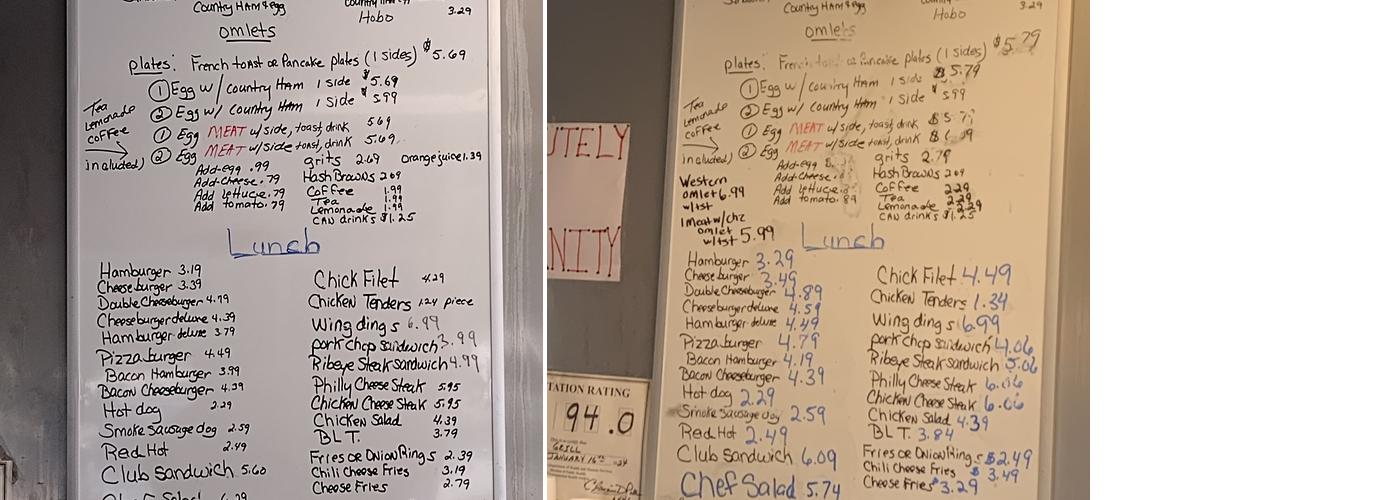 Country HAM & egg
Hobo 3.29
omlets
plates: French toast or Pancake plates (1 sides) $5.69
① Egg w/ country HAM 1 side $5.69
② Egg w/ country HAM 1 side $5.99
Tea
Lemonade
coffee
included)
① Egg MEAT w/side, toast, drink 5.69
② Egg MEAT w/side toast, drink 5.69
grits 2.69 Orange juice 1.39
Add-egg .99 Hash Browns 2.69
Add-cheese .79 Coffee 1.99
Add lettuce .79 Tea 1.99
Add tomato .79 Lemonade 1.99
CAN drinks $1.25
Lunch
Hamburger 3.19
Cheeseburger 3.39
Double Cheeseburger 4.79
Cheeseburger deluxe 4.39
Hamburger deluxe 3.79
Pizza burger 4.49
Bacon Hamburger 3.99
Bacon Cheeseburger 4.29
Hot dog 2.29
Smoke Sausage dog 2.59
Red Hot 2.49
Club Sandwich 5.60
Chick Filet 4.29
Chicken Tenders 1.24 piece
Wing dings 6.99
pork chop sandwich 3.99
Ribeye Steak Sandwich 4.99
Philly Cheese Steak 5.95
Chicken Cheese Steak 5.95
Chicken Salad 4.39
BLT. 3.79
Fries or Onion Rings 2.39
Chili Cheese Fries 3.19
Cheese Fries 2.79
Country HAM & egg
Hobo 3.29
omlets
plates: French toast or Pancake plates (1 sides) $5.79
① Egg w/ country HAM 1 side $5.79
② Egg w/ Country HAM 1 side $5.99
Tea
Lemonade
coffee
included)
① Egg MEAT w/side, toast, drink
② Egg MEAT w/side toast, drink
grits 2.79
Add-egg Hash Browns 2.69
Add-cheese Coffee 2.29
Add lettuce Tea 2.29
Add tomato .89 Lemonade 2.29
CAN drinks $1.25
Western
omlet 6.99
w/tst
1 Meat w/chz
omlet
w/tst 5.99
Lunch
Hamburger 3.29
Cheeseburger 3.49
Double Cheeseburger 4.89
Cheeseburger deluxe 4.59
Hamburger deluxe 4.49
Pizza burger 4.79
Bacon Hamburger 4.19
Bacon Cheeseburger 4.39
Hot dog 2.29
Smoke Sausage dog 2.59
Red Hot 2.49
Club Sandwich 6.09
Chef Salad 5.74
Chick Filet 4.49
Chicken Tenders 1.34
Wing dings 6.99
pork chop sandwich 4.06
Ribeye Steak Sandwich 5.06
Philly Cheese Steak 6.06
Chicken Cheese Steak 6.06
Chicken Salad 4.39
BLT. 3.84
Fries or Onion Rings $2.49
Chili Cheese Fries $3.49
Cheese Fries $3.29
UTELY
NITY
TATION RATING
94.0
GRILL
JANUARY 16th